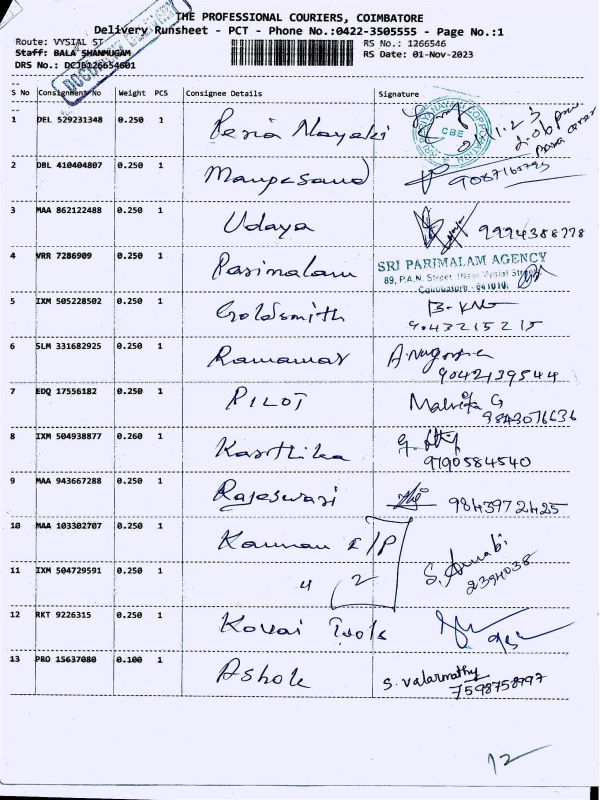 THE PROFESSIONAL COURIERS, COIMBATORE
Delivery Runsheet - PCT - Phone No.:0422-3505555 - Page No.:1
Route: VYSIAL ST RS No.: 1266546
Staff: BALA SHANMUGAM RS Date: 01-Nov-2023
DRS No.: DCJB126654601
DOCUMENT
S No Consignment No Weight PCS Consignee Details Signature
1 DEL 529231348 0.250 1 Peria Nayaki
CBE
2 DBL 410404807 0.250 1
3 MAA 862122488 0.250 1 Udaya 9994388778
4 VRR 7286909 0.250 1 Parimalam SRI PARIMALAM AGENCY
89, P.A.N. Street (New Vysial Street)
Coimbatore - 641010.
5 IXM 505228502 0.250 1 Goldsmith
9043215215
6 SLM 331682925 0.250 1
9042139544
7 EDQ 17556182 0.250 1 PILOT
9843076636
8 IXM 504938877 0.260 1 Karthika
9790584540
9 MAA 943667288 0.250 1 Rajeswari 9843972425
10 MAA 103302707 0.250 1 Kannan E/P
11 IXM 504729591 0.250 1 2
12 RKT 9226315 0.250 1 Kovai Tools
13 PRO 15637080 0.100 1 Ashok S. Valarmathy
7598758797
12